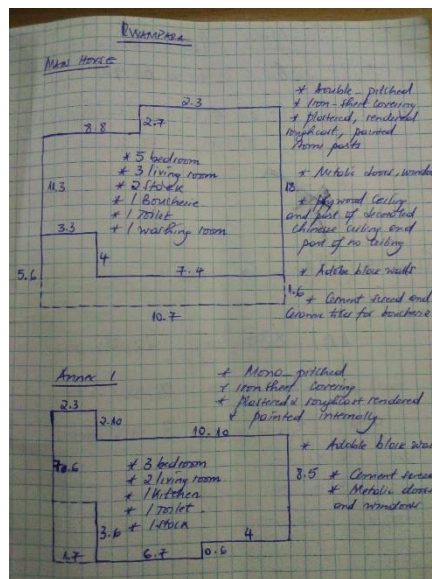 RWAMPARA
MAIN HOUSE
2.3
8.8
2.7
11.3
3.3
4
7.4
5.6
1.6
10.7
* 5 bedroom
* 3 living room
* 2 Stock
* 1 Boucherie
* 1 Toilet
* 1 washing room
* Double-pitched
* Iron-sheet covering
* plastered, rendered
roughcast, painted
some parts
* Metalic doors, window
ceiling
and part of decorated
chinese ceiling and
part of no ceiling
* Adobe block walls
* Cement screed and
Ceramic tiles for boucherie
Annex 1
2.3
2.10
10.10
3.6
1.7
6.7
0.6
4
8.5
* 3 bedroom
* 2 living room
* 1 Kitchen
* 1 Toilet
* 1 stock
* Mono-pitched
* iron sheet covering
* plastered & roughcast rendered
* painted internally
* Adobe block wall
* Cement screed
* Metalic doors
and windows